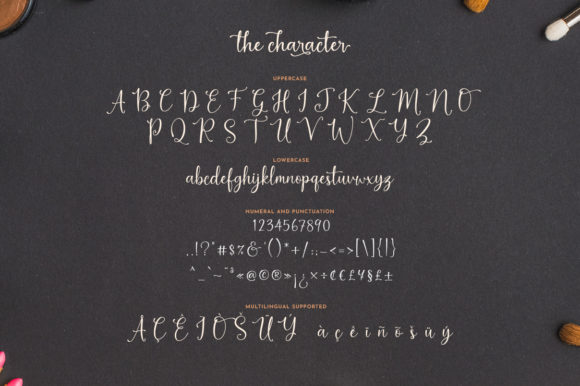 the character
UPPERCASE
A B C D E F G H I J K L M N O
P Q R S T U V W X Y Z
LOWERCASE
abcdefghijklmnopqestuvwxyz
NUMERAL AND PUNCTUATION
1234567890
..!?"#$%&'()*+/:;-<=>[\]{|}
^_`~¨$«@©®»¡¿×÷¢€£¥§£±
MULTILINGUAL SUPPORTED
A Ç È I Ò Š Ü Ý à ç ê ī ñ õ š ū ÿ